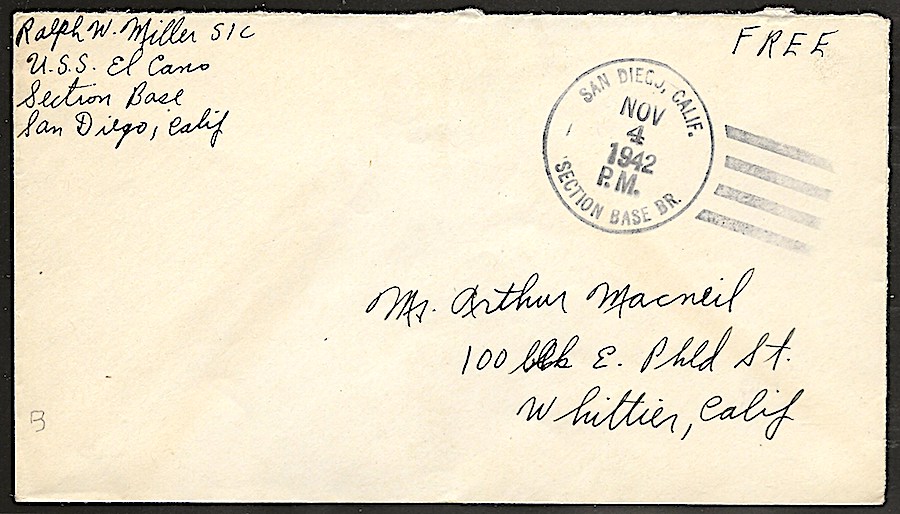 Ralph W. Miller S1C
U.S.S. El Cano
Section Base
San Diego, Calif
FREE
SAN DIEGO, CALIF.
NOV
4
1942
P.M.
SECTION BASE BR.
Mr. Arthur Macneil
100 blk E. Phld St.
Whittier, Calif
B